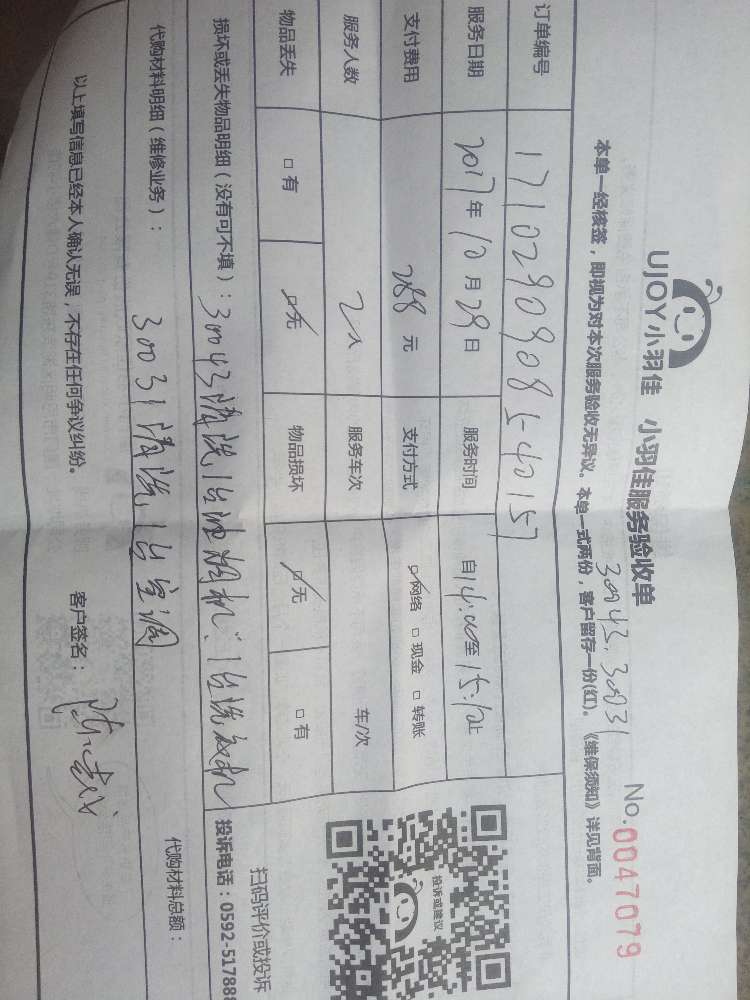 UJOY小羽佳 小羽佳服务验收单
No.0047079
30043、30031
本单一经核签，即视为对本次服务验收无异议。本单一式两份，客户留存一份(红)。《维保须知》详见背面。
订单编号 1710290908540157
服务日期 2017年10月29日 服务时间 自14:00至15:10止
支付费用 288元 支付方式 网络 现金 转账
服务人数 2人 服务车次 车/次
物品丢失 有 无 物品损坏 无 有
投诉或建议
扫码评价或投诉
损坏或丢失物品明细（没有可不填）：30043清洗1台油烟机、1台洗衣机
投诉电话：0592-517888
代购材料明细（维修业务）：
30031清洗1台空调
代购材料总额：
以上填写信息已经本人确认无误，不存在任何争议纠纷。 客户签名：